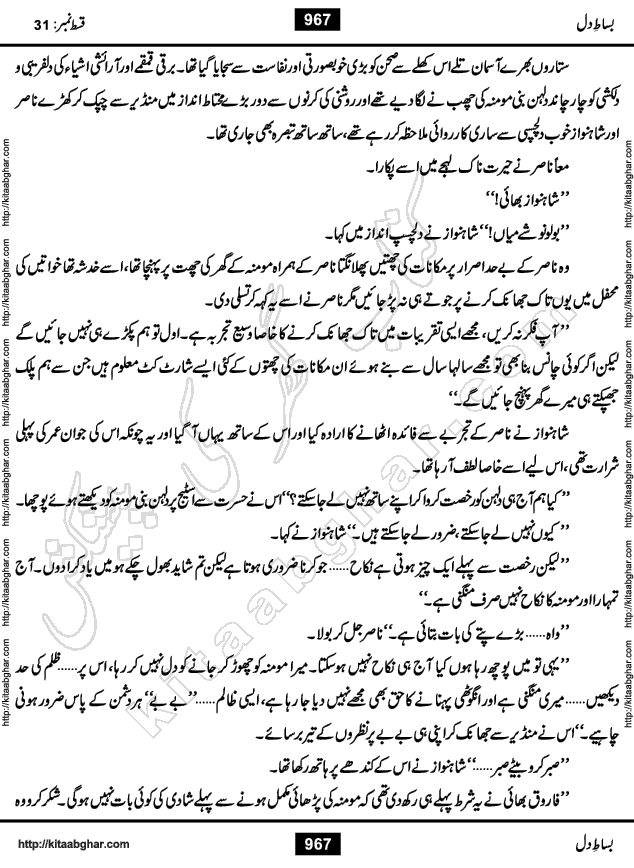 قسط نمبر: 31
967
بساطِ دل
ستاروں بھرے آسمان تلے اس کھلے سے صحن کو بڑی خوبصورتی اور نفاست سے سجایا گیا تھا۔ برقی قمقمے اور آرائشی اشیاء کی دلفریبی و
دلکشی کو چار چاند دلہن بنی مومنہ کی چھب نے لگا دیے تھے اور روشنی کی کرنوں سے دور بڑے محتاط انداز میں منڈیر سے چپک کر کھڑے ناصر
اور شاہنواز خوب دلچسپی سے ساری کارروائی ملاحظہ کر رہے تھے، ساتھ ساتھ تبصرہ بھی جاری تھا۔
معاً ناصر نے حیرت ناک لہجے میں اسے پکارا۔
’’شاہنواز بھائی!‘‘
’’بولو نوشے میاں!‘‘ شاہنواز نے دلچسپ انداز میں کہا۔
وہ ناصر کے بے حد اصرار پر مکانات کی چھتیں پھلانگتا ناصر کے ہمراہ مومنہ کے گھر کی چھت پر پہنچا تھا، اسے خدشہ تھا خواتین کی
محفل میں یوں تاک جھانک کرنے پر جوتے ہی نہ پڑ جائیں مگر ناصر نے اسے یہ کہہ کر تسلی دی۔
’’آپ فکر نہ کریں، مجھے ایسی تقریبات میں تاک جھانک کرنے کا خاصا وسیع تجربہ ہے۔ اول تو ہم پکڑے ہی نہیں جائیں گے
لیکن اگر کوئی چانس بنا بھی تو مجھے سالہا سال سے بنے ہوئے ان مکانات کی چھتوں کے کئی ایسے شارٹ کٹ معلوم ہیں جن سے ہم پلک
جھپکتے ہی میرے گھر پہنچ جائیں گے۔‘‘
شاہنواز نے ناصر کے تجربے سے فائدہ اٹھانے کا ارادہ کیا اور اس کے ساتھ یہاں آ گیا اور یہ چونکہ اس کی جوان عمر کی پہلی
شرارت تھی، اس لیے اسے خاصا لطف آ رہا تھا۔
’’کیا ہم آج ہی دلہن کو رخصت کروا کر اپنے ساتھ نہیں لے جا سکتے؟‘‘ اس نے حسرت سے اسٹیج پر دلہن بنی مومنہ کو دیکھتے ہوئے پوچھا۔
’’کیوں نہیں لے جا سکتے، ضرور لے جا سکتے ہیں۔‘‘ شاہنواز نے کہا۔
’’لیکن رخصت سے پہلے ایک چیز ہوتی ہے نکاح...... جو کرنا ضروری ہوتا ہے لیکن تم شاید بھول چکے ہو میں یاد کرا دوں۔ آج
تمہارا اور مومنہ کا نکاح نہیں صرف منگنی ہے۔‘‘
’’واہ...... بڑے پتے کی بات بتائی ہے۔‘‘ ناصر جل کر بولا۔
’’یہی تو میں پوچھ رہا ہوں کیا آج ہی نکاح نہیں ہو سکتا۔ میرا مومنہ کو چھوڑ کر جانے کو دل نہیں کر رہا، اس پر...... ظلم کی حد
دیکھیں...... میری منگنی ہے اور انگوٹھی پہنانے کا حق بھی مجھے نہیں دیا جا رہا ہے، ایسی ظالم...... ’’بے بے‘‘ ہر دشمن کے پاس ضرور ہونی
چاہیے۔‘‘ اس نے منڈیر سے جھانک کر اپنی ہی بے بے پر نظروں کے تیر برسائے۔
’’صبر کرو بیٹے صبر......‘‘ شاہنواز نے اس کے کندھے پر ہاتھ رکھا تھا۔
’’فاروق بھائی نے یہ شرط پہلے ہی رکھ دی تھی کہ مومنہ کی پڑھائی مکمل ہونے سے پہلے شادی کی کوئی بات نہیں ہوگی۔ شکر کرو وہ
http://kitaabghar.com
http://kitaabghar.com
http://kitaabghar.com
http://kitaabghar.com
http://kitaabghar.com
http://kitaabghar.com
http://kitaabghar.com
http://kitaabghar.com
http://kitaabghar.com
http://kitaabghar.com
http://kitaabghar.com
http://kitaabghar.com
کتاب گھر کی پیشکش
kitaabghar.com
http://kitaabghar.com
967
بساطِ دل